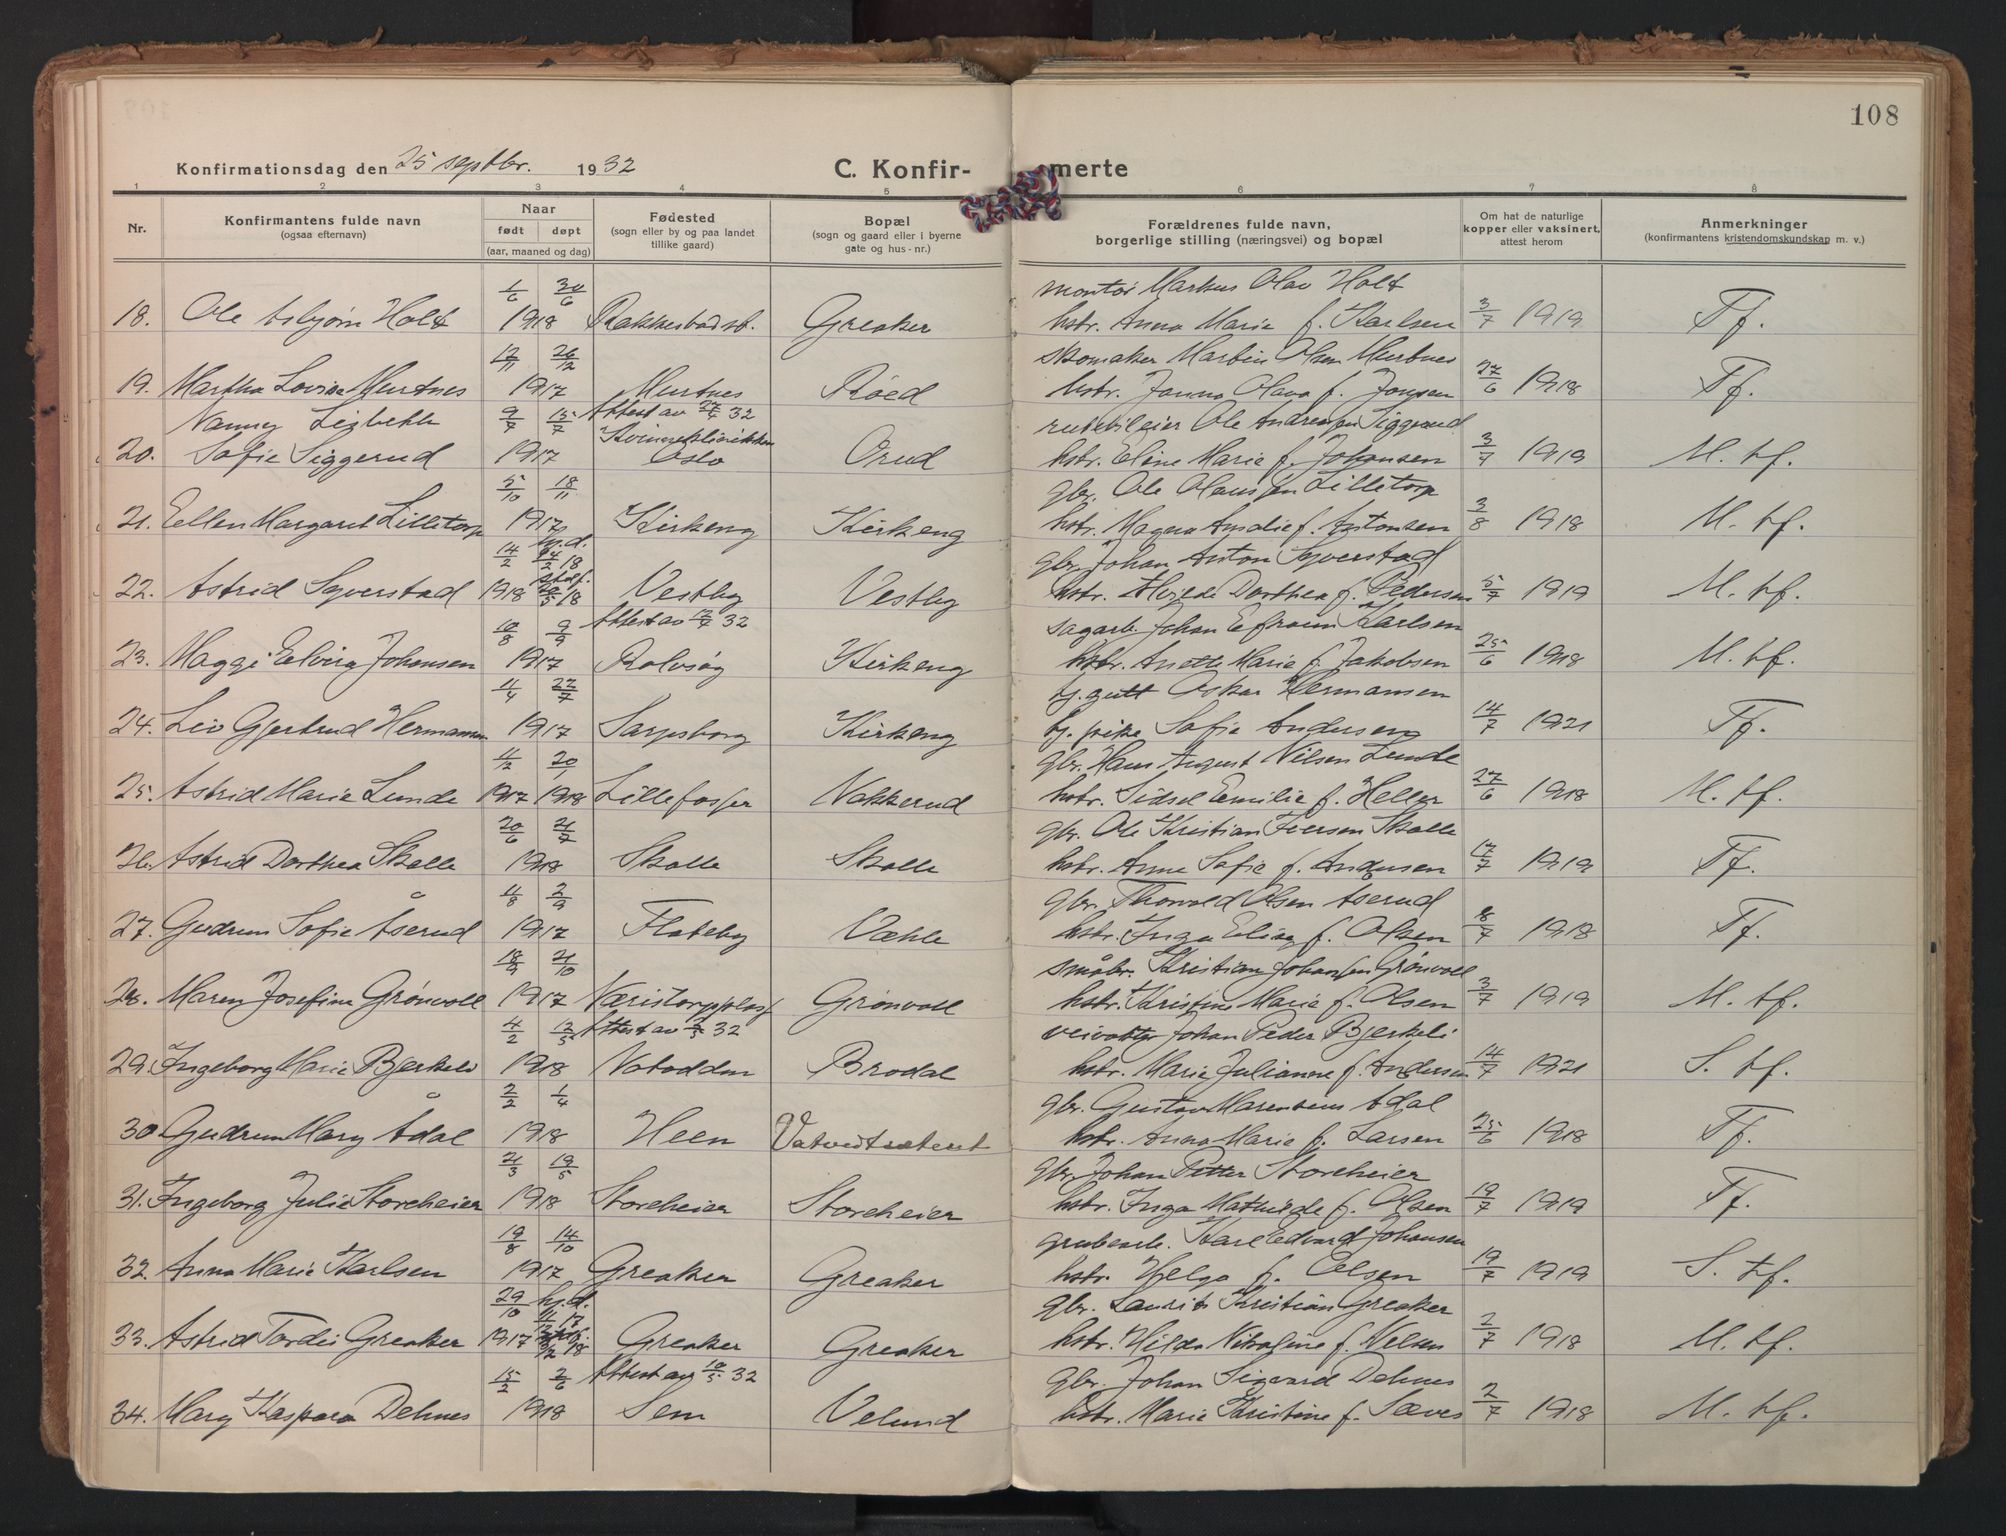 108
Konfirmationsdag den 25 septbr. 1932
C. Konfir- merte
1 2 3 4 5 6 7 8
Nr.
Konfirmantens fulde navn
(ogsaa efternavn)
Naar
født døpt
(aar, maaned og dag)
Fødested
(sogn eller by og paa landet
tillike gaard)
Bopæl
(sogn og gaard eller i byerne
gate og hus-nr.)
Forældrenes fulde navn,
borgerlige stilling (næringsvei) og bopæl
Om hat de naturlige
kopper eller vaksinert,
attest herom
Anmerkninger
(konfirmantens kristendomskundskap m. v.)
1/6 30/6 montør Markus Olav Holt
18. Ole Asbjørn Holt 1918 Rakkestad st. Greaker hstr. Anna Marie f. Karlsen 3/7 1919 Tf.
12/11 26/12 skomaker Martin Olsen Murtnes
19. Martha Lovise Murtnes 1917 Murtnes Røed hstr. Janna Olava f. Jonsen 27/6 1918 Tf.
Nanny Ligbekk 9/7 15/7 Attest av 27/4 32 rutebileier Ole Andreassen Siggerud
Kvinneklinikken
20. Sofie Siggerud 1917 Oslo Orud hstr. Eline Marie f. Johansen 3/7 1919 M. tf.
5/10 18/11 gbr. Ole Olaussen Lilletorp
21. Ellen Margaret Lilletorp 1917 Kirkeng Kirkeng hstr. Magna Amalie f. Antonsen 3/8 1918 M. tf.
14/2 hj.d. 14/2 18 gbr. Johan Anton Syverstad
22. Astrid Syverstad 1918 stadf. 18 Vestby Vestby hstr. Dorthea f. Pedersen 5/7 1919 M. tf.
10/8 9/9 Attest av 12/7 32 sagarb. Johan Efraim Karlsen
23. Maggi Elvira Johansen 1917 Rolvsøy Kirkeng hstr. Anette Marie f. Jakobsen 25/6 1918 M. tf.
11/4 22/7 tj. gutt Oskar Hermansen
24. Liv Gjertrud Hermansen 1917 Sarpsborg Kirkeng tj. pike Sofie Andersen 14/7 1921 Tf.
11/12 20/1 gbr. Hans August Nilsen Lunde
25. Astrid Marie Lunde 1917 1918 Lillefosser Nakkerud hstr. Sidsel Emilie f. Heller 27/6 1918 M. tf.
20/6 21/7 gbr. Ole Kristian Iversen Skolle
26. Astrid Dorthea Skolle 1918 Skolle Skolle hstr. Anna Sofie f. Andersen 17/7 1919 Tf.
4/8 2/9 gbr. Thorvald Olsen Åserud
27. Gudrun Sofie Åserud 1917 Flateby Væhle hstr. Inga Elise f. Olsen 8/7 1918 Tf.
18/9 21/10 småbr. Kristian Johansen Grønvoll
28. Maren Josefine Grønvoll 1917 Næristorpplass Grønvoll hstr. Kristine Marie f. Olsen 3/7 1919 M. tf.
4/2 12/5 Attest av 32 veivokter Johan Peder Bjerkeli
29. Ingeborg Marie Bjerkeli 1918 Notodden Brodal hstr. Marie Julianne f. Andersen 14/7 1921 S. tf.
2/2 1/4 gbr. Gustav Marensius Ådal
30 Gudrun Mary Ådal 1918 Heen Vatvedtsæteret hstr. Anna Marie f. Larsen 25/6 1918 Tf.
21/3 19/5 gbr. Johan Petter Storeheier
31. Ingeborg Julie Storeheier 1918 Storeheier Storeheier hstr. Inga Mathilde f. Olsen 19/7 1919 Tf.
19/8 14/10 grubearb. Karl Edvard Johansen
32. Anna Marie Karlsen 1917 Greaker Greaker hstr. Helga f. Olsen 19/7 1919 S. tf.
29/10 hj.d. gbr. Laurits Kristian Greaker
33. Astrid Tordis Greaker 1917 18 Greaker Greaker hstr. Hilda Nikoline f. Nilsen 2/7 1918 M. tf.
15/2 2/6 Attest av 10/5 32 gbr. Johan Sigvard Dehnes
34. Mary Kaspara Dehnes 1918 Sem Velund hstr. Marie Kristine f. Sæves 2/7 1918 M. tf.